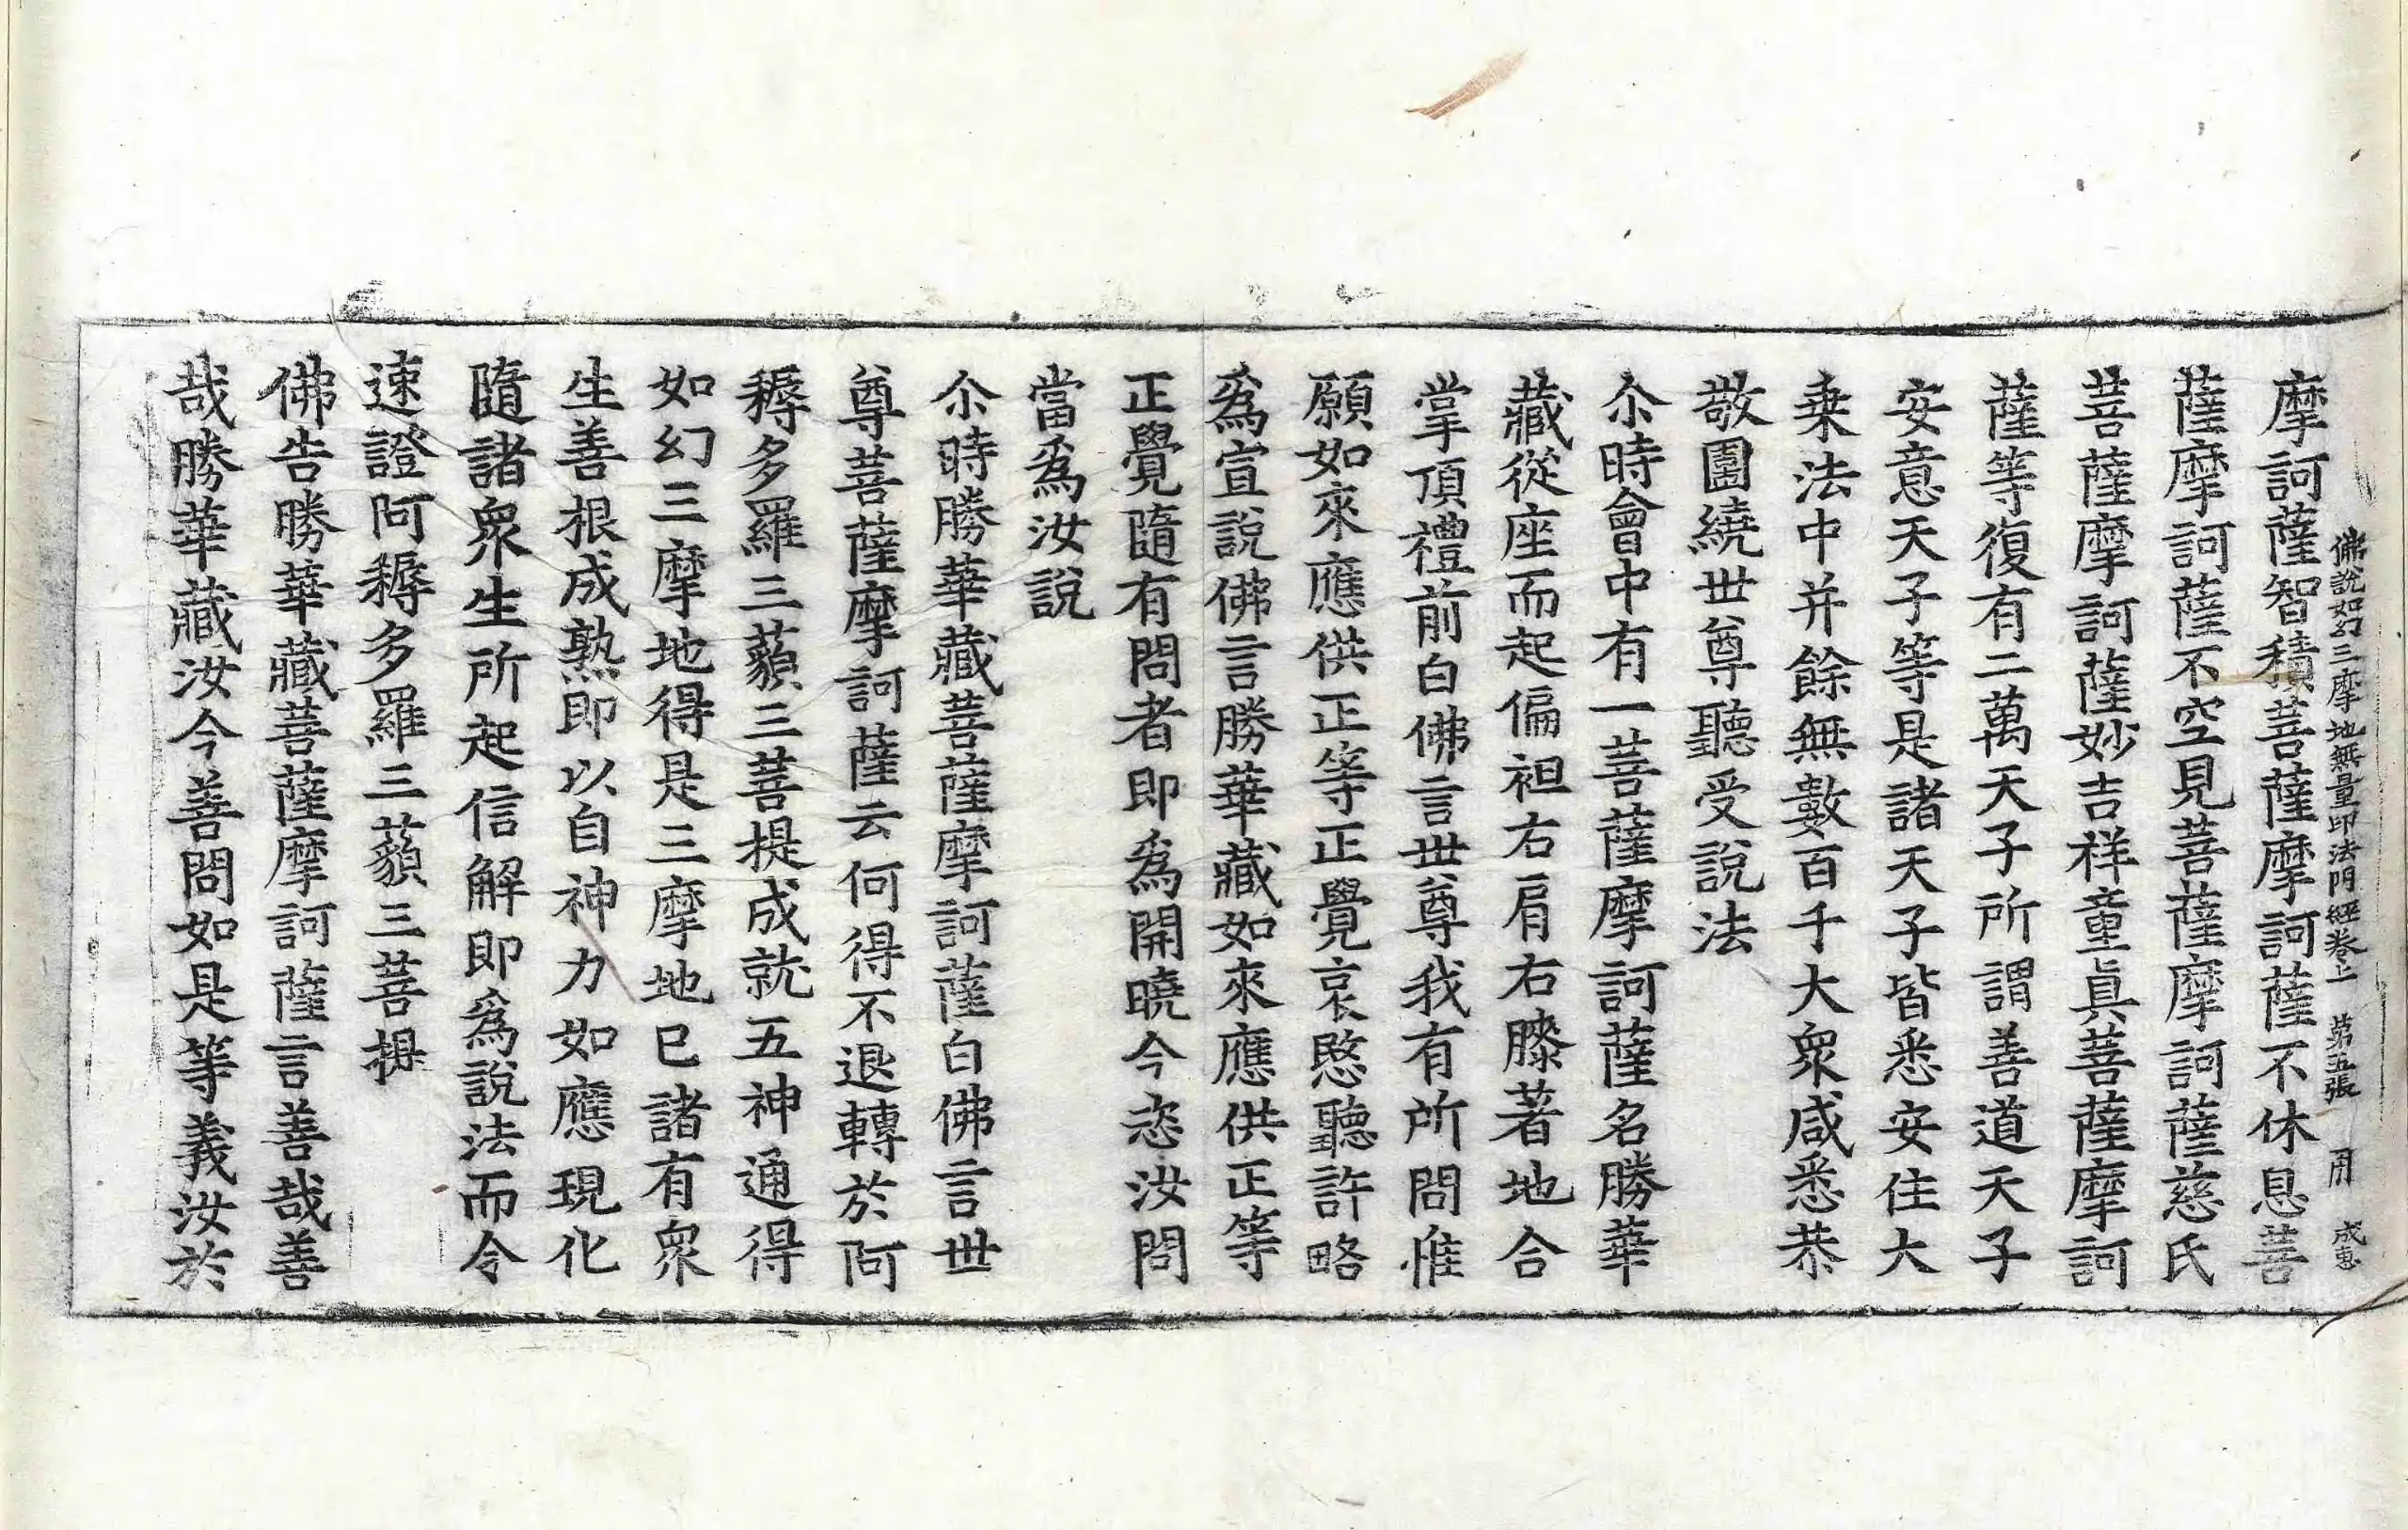 佛說如幻三摩地無量印法門經卷上 第五張 用 成惠
摩訶薩智積菩薩摩訶薩不休息菩
薩摩訶薩不空見菩薩摩訶薩慈氏
菩薩摩訶薩妙吉祥童眞菩薩摩訶
薩等復有二萬天子所謂善道天子
安意天子等是諸天子皆悉安住大
乗法中幷餘無數百千大衆咸悉恭
敬圍繞世尊聽受說法
尒時會中有一菩薩摩訶薩名勝華
藏從座而起偏袒右肩右膝著地合
掌頂禮前白佛言世尊我有所問惟
願如來應供正等正覺哀愍聽許略
爲宣說佛言勝華藏如來應供正等
正覺隨有問者即爲開曉今恣汝問
當爲汝說
尒時勝華藏菩薩摩訶薩白佛言世
尊菩薩摩訶薩云何得不退轉於阿
耨多羅三藐三菩提成就五神通得
如幻三摩地得是三摩地已諸有衆
生善根成熟即以自神力如應現化
隨諸衆生所起信解即爲說法而令
速證阿耨多羅三藐三菩提
佛告勝華藏菩薩摩訶薩言善哉善
哉勝華藏汝今善問如是等義汝於